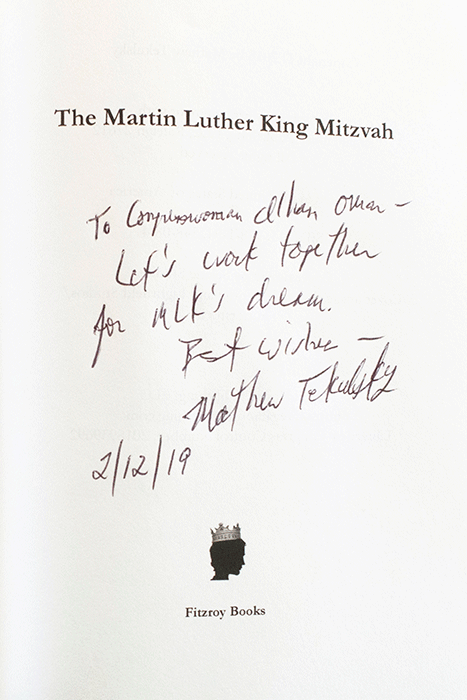 The Martin Luther King Mitzvah
To Congresswoman Ilhan Omar –
Let's work together
for MLK's dream.
Best wishes –
Mathew Tekulsky
2/12/19
Fitzroy Books